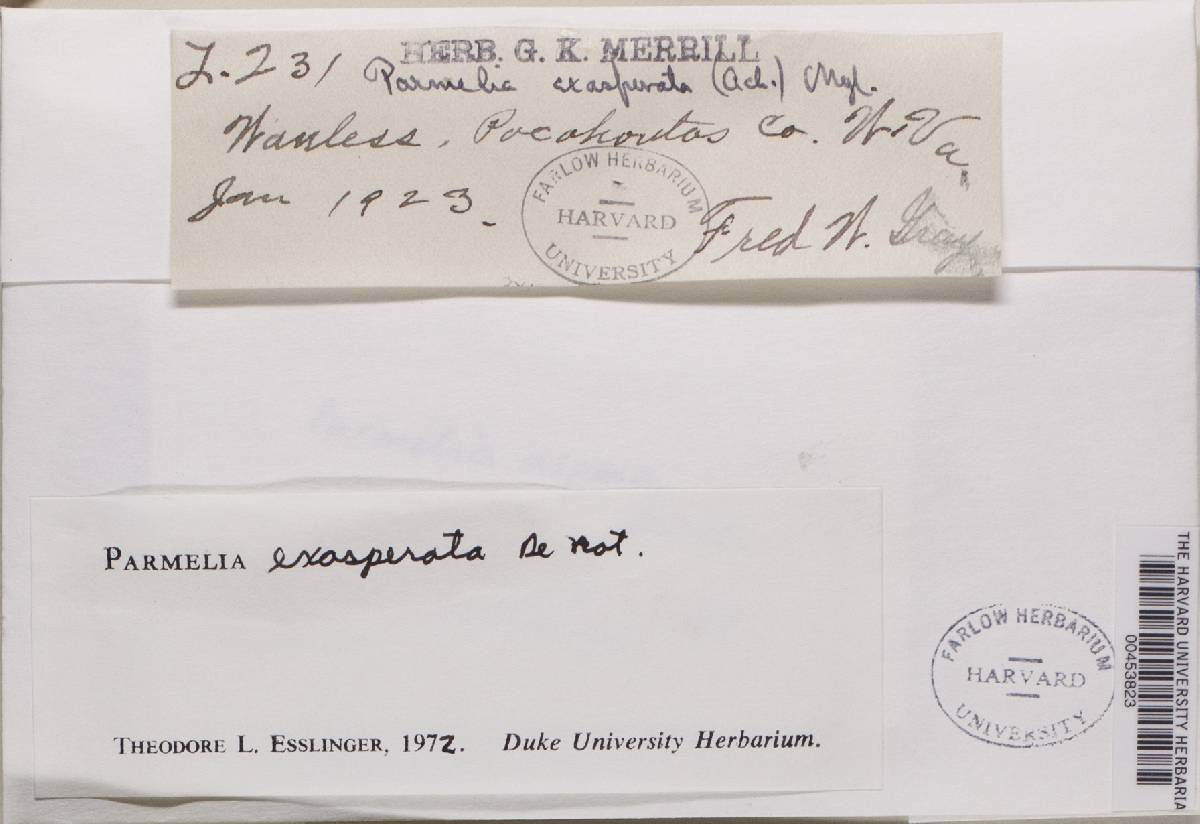 HERB. G. K. MERRILL
L.231 Parmelia exasperata (Ach.) Nyl.
Wanless, Pocahontas Co. W.Va.
Jan 1923.
Fred W. Gray
FARLOW HERBARIUM
HARVARD
UNIVERSITY
PARMELIA exasperata De Not.
THEODORE L. ESSLINGER, 1972. Duke University Herbarium.
FARLOW HERBARIUM
HARVARD
UNIVERSITY
THE HARVARD UNIVERSITY HERBARIA
00453823